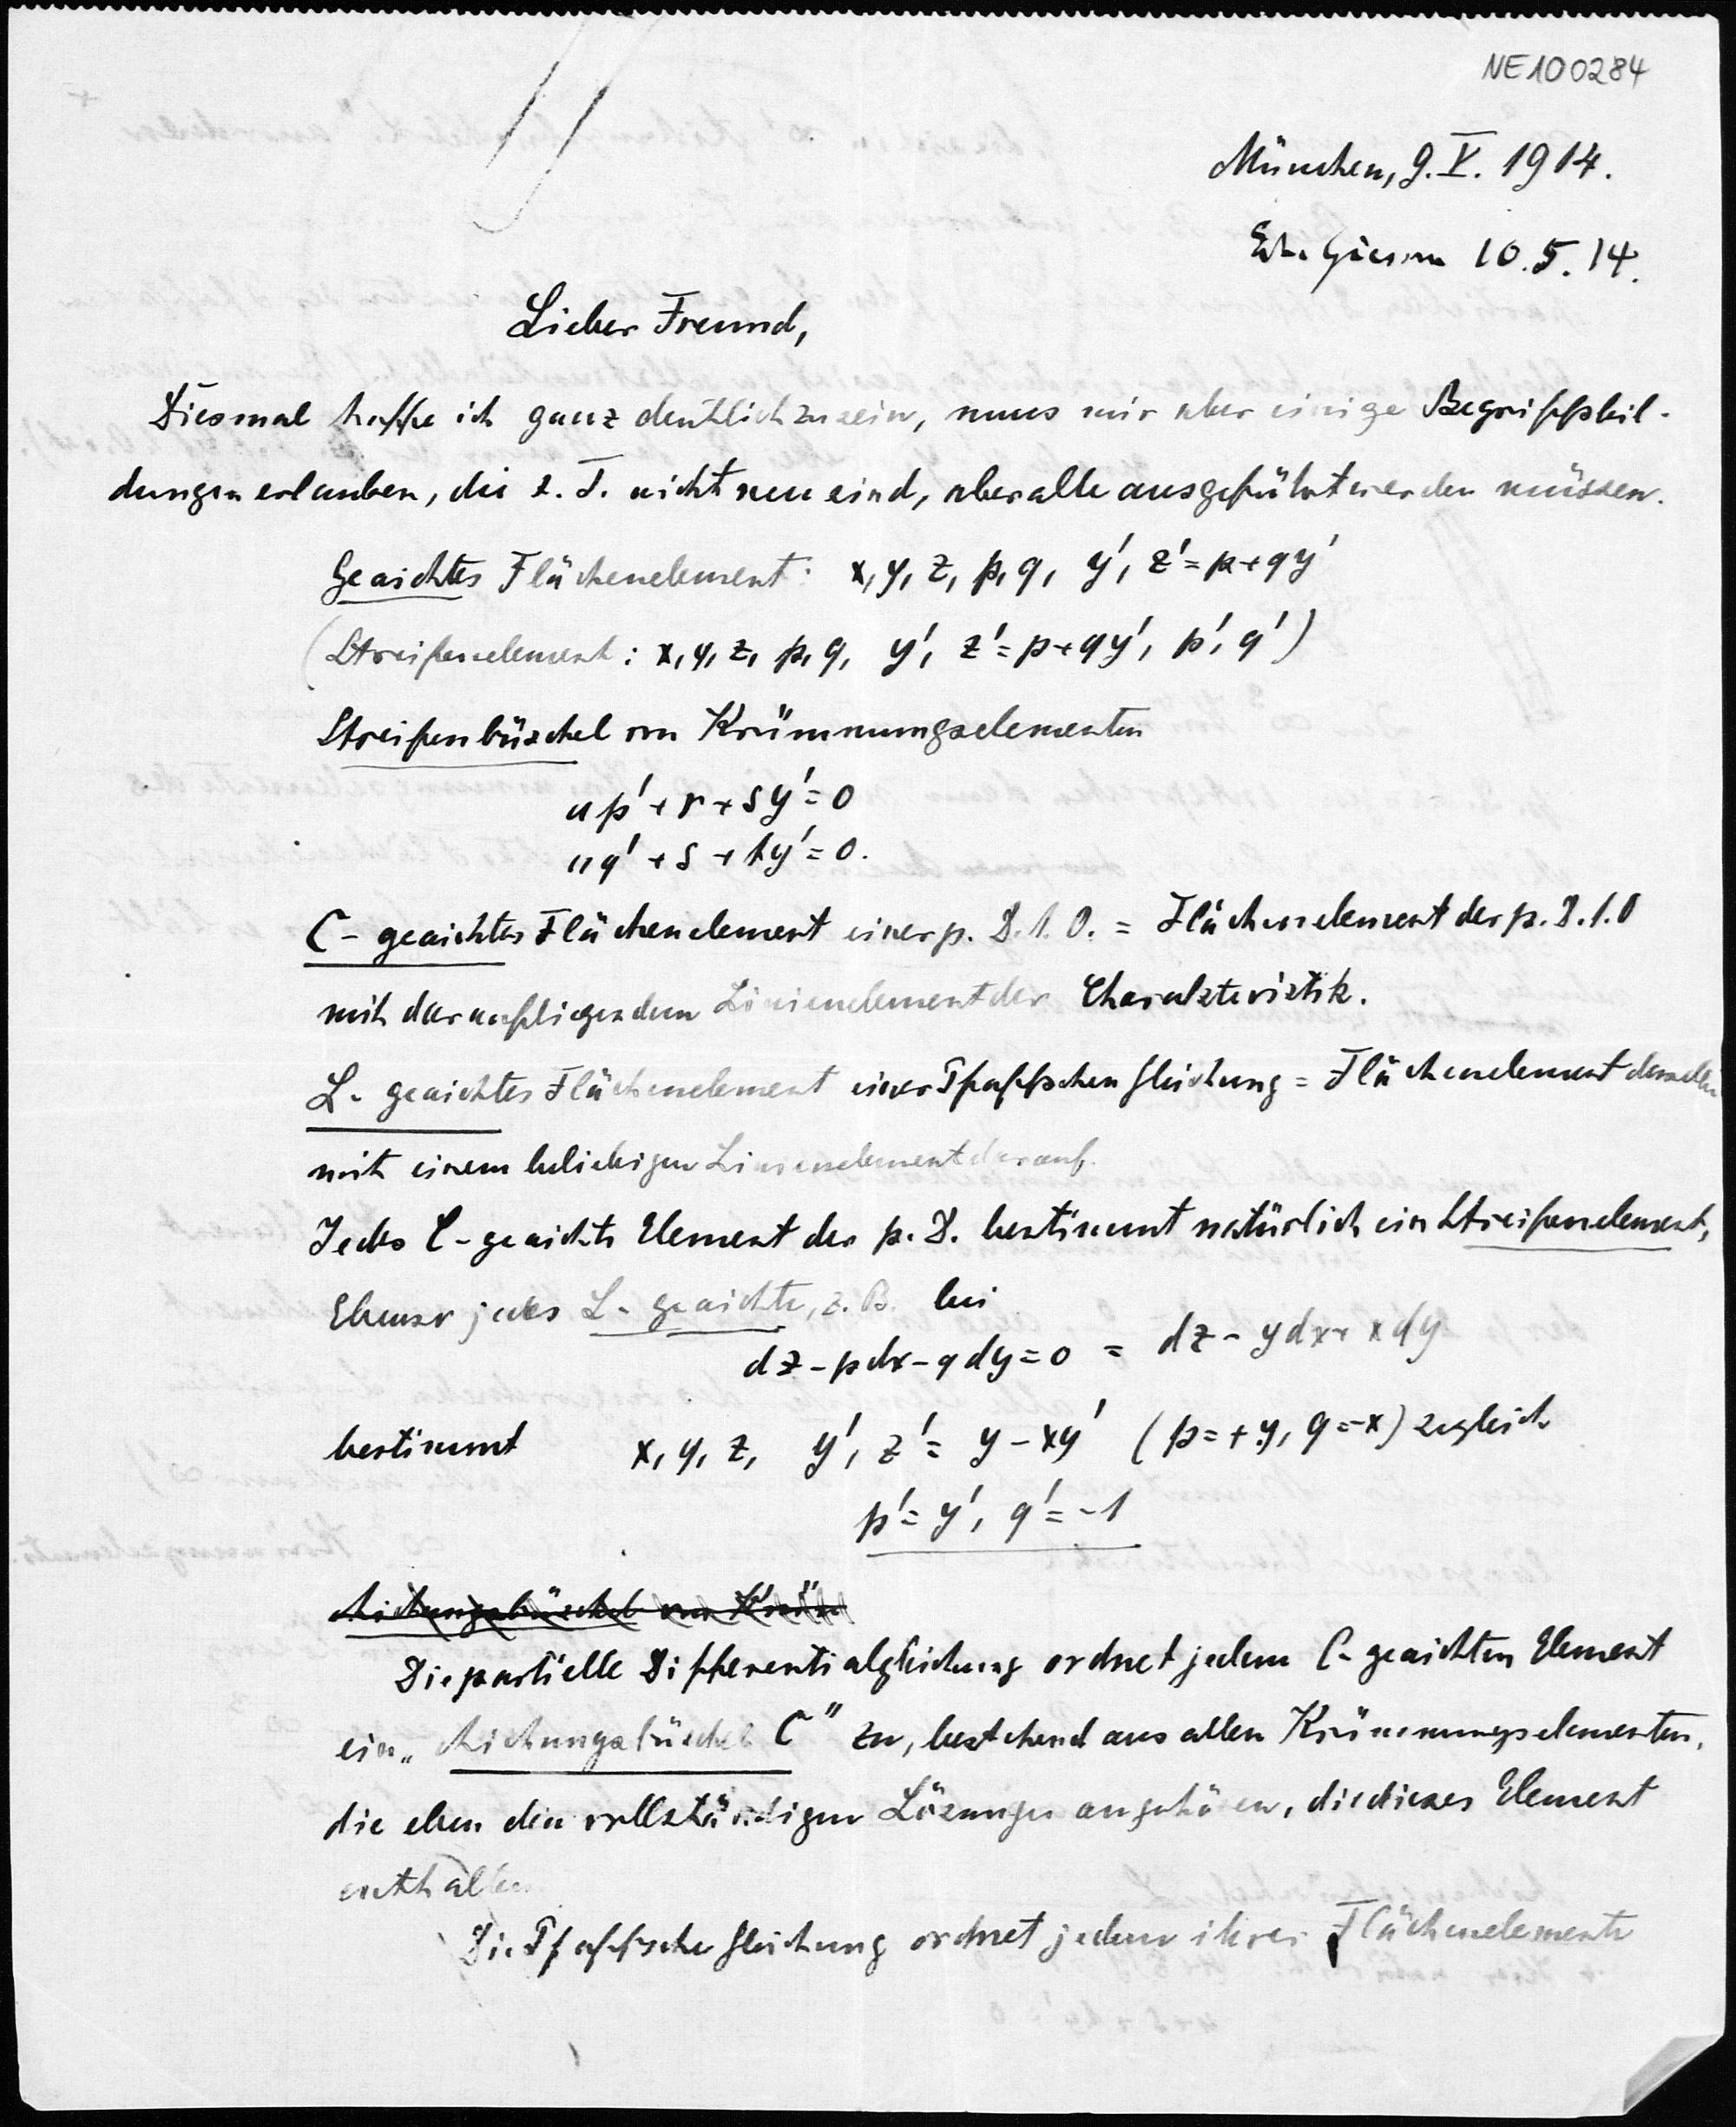 NE100284
München, 9. V. 1914.
Erh. Giessen 10.5.14.
Lieber Freund,
Diesmal hoffe ich ganz deutlich zu sein, muss mir aber einige Begriffsbil-
dungen erlauben, die z. T. nicht neu sind, aber alle ausgeführt werden müssen.
Geaichtes Flächenelement: x, y, z, p, q, y', z' = p + qy'
(Streifenelement: x, y, z, p, q, y', z' = p + qy', p', q')
Streifenbüschel von Krümmungselementen
up' + r + sy' = 0
uq' + s + ty' = 0.
C-geaichtes Flächenelement einer p. D. 1. O. = Flächenelement der p. D. 1. O
mit daraufliegendem Linienelement der Charakteristik.
L-geaichtes Flächenelement einer Pfaffschen Gleichung = Flächenelement derselben
mit einem beliebigen Linienelement darauf.
Jedes C-geaichte Element der p. D. bestimmt natürlich ein Streifenelement,
Ebenso jedes L-geaichte, z. B. bei
dz - pdx - qdy = 0 = dz - ydx + xdy
bestimmt x, y, z, y', z' = y - xy' (p = +y, q = -x) zugleich
p' = y', q' = -1
Aichungsbüschel von Krüm
Die partielle Differentialgleichung ordnet jedem C-geaichten Element
ein „Aichungsbüschel C" zu, bestehend aus allen Krümmungselementen,
die eben den vollständigen Lösungen angehören, die dieses Element
enthalten
Die Pfaffsche Gleichung ordnet jedem ihrer Flächenelemente